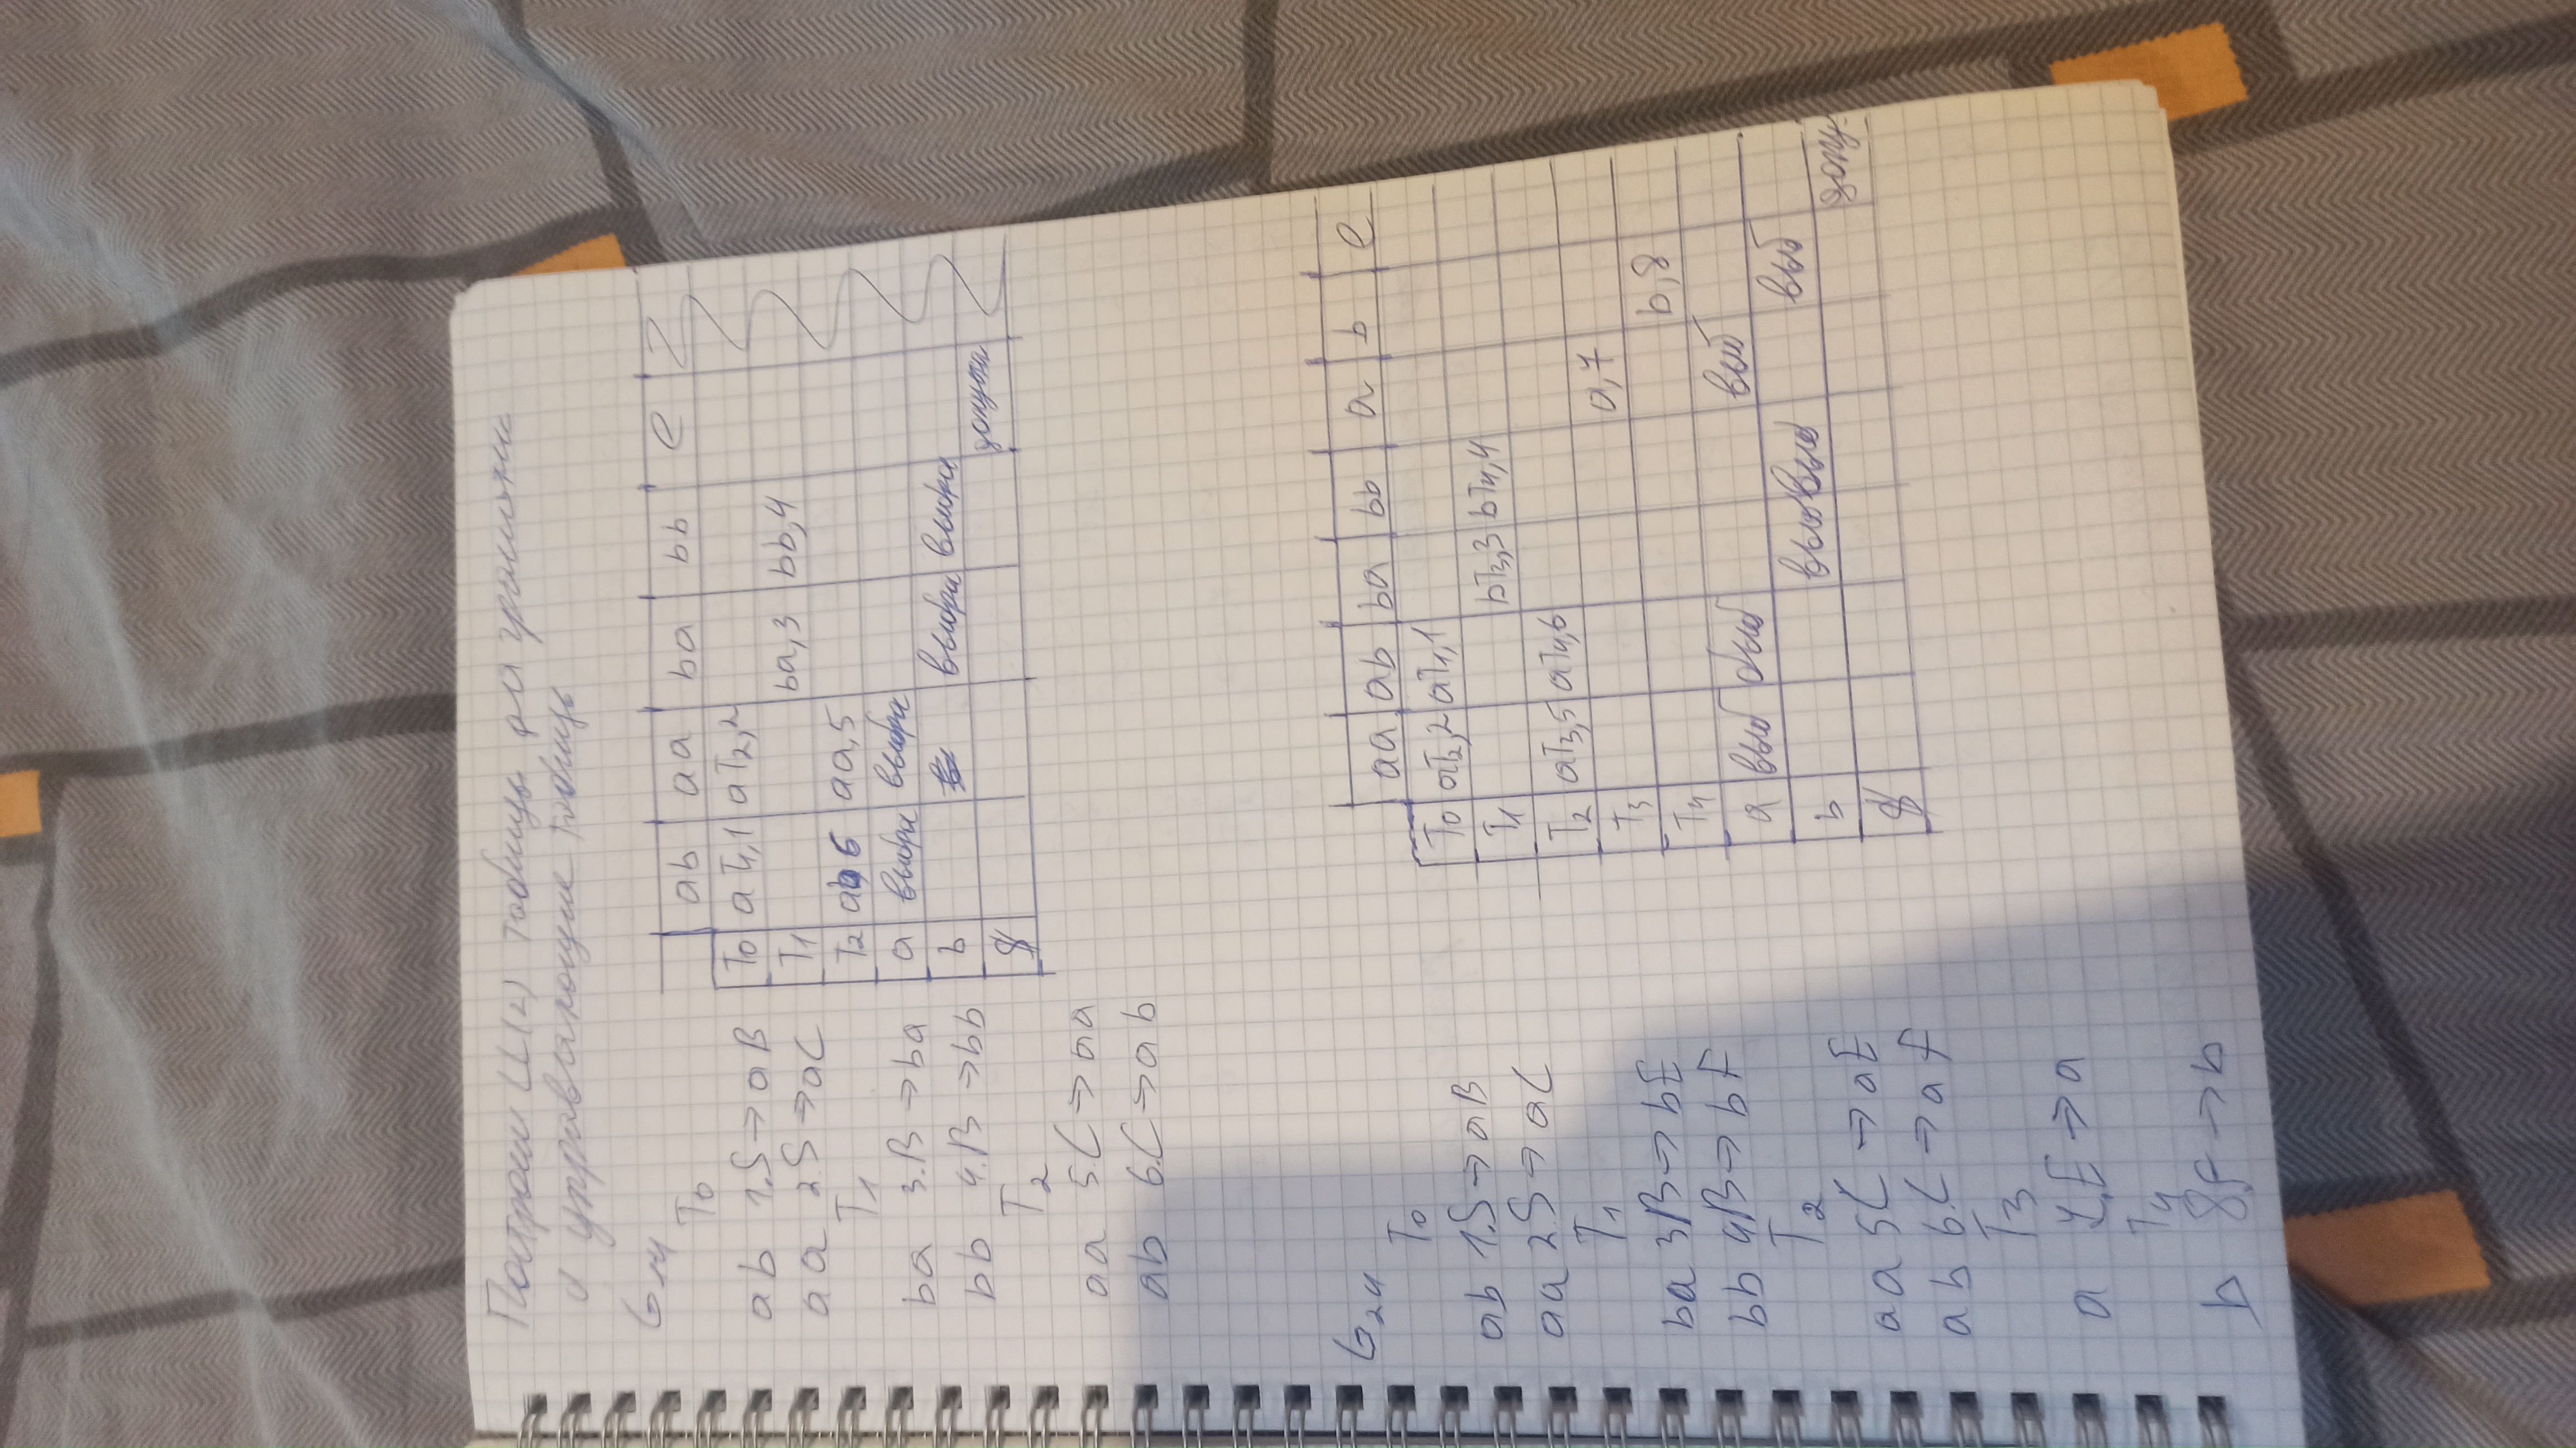 Построим LL(2) таблицы для граматик
и управляющие таблицы
G14
T0
ab 1.S→aB
aa 2.S→aC
T1
ba 3.B→ba
bb 4.B→bb
T2
aa 5.C→aa
ab 6.C→ab
ab aa ba bb e
T0 aT1,1 aT2,2
T1 ba,3 bb,4
T2 ab,6 aa,5
a выбра выбра
b выбра выбра
$ допуск
G24
T0
ab 1.S→aB
aa 2S→aC
T1
ba 3B→bE
bb 4B→bF
T2
aa 5C→aE
ab 6.C→aF
T3
a 7.E→a
T4
b 8.F→b
aa ab ba bb a b e
T0 aT2,2 aT1,1
T1 bT3,3 bT4,4
T2 aT3,5 aT4,6
T3 a,7
T4 b,8
a выб выб выб
b выб выб выб
$ допу.